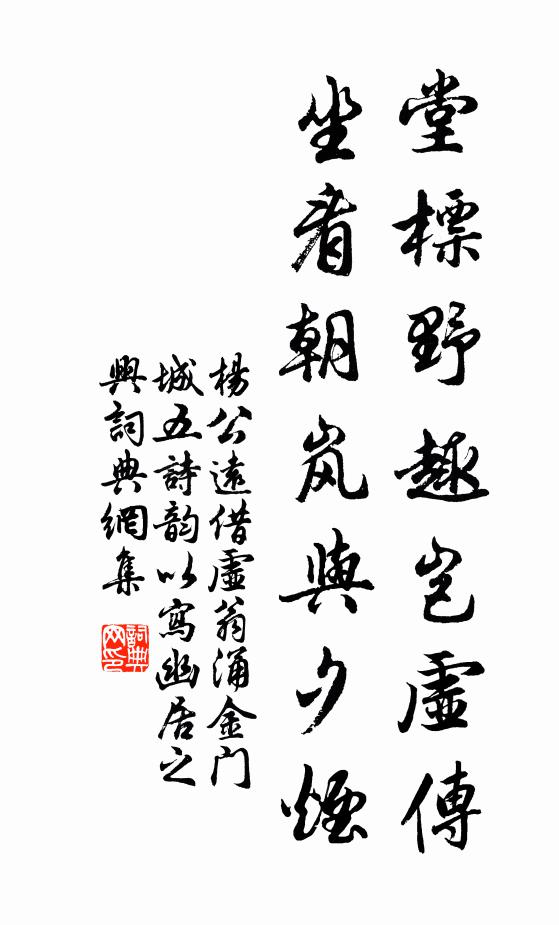 堂標野趣豈虛傳
坐看朝岚與夕煙
楊公遠借虛翁涌金門
城五詩韵以寫幽居之
興詞典網集
詞典
网印